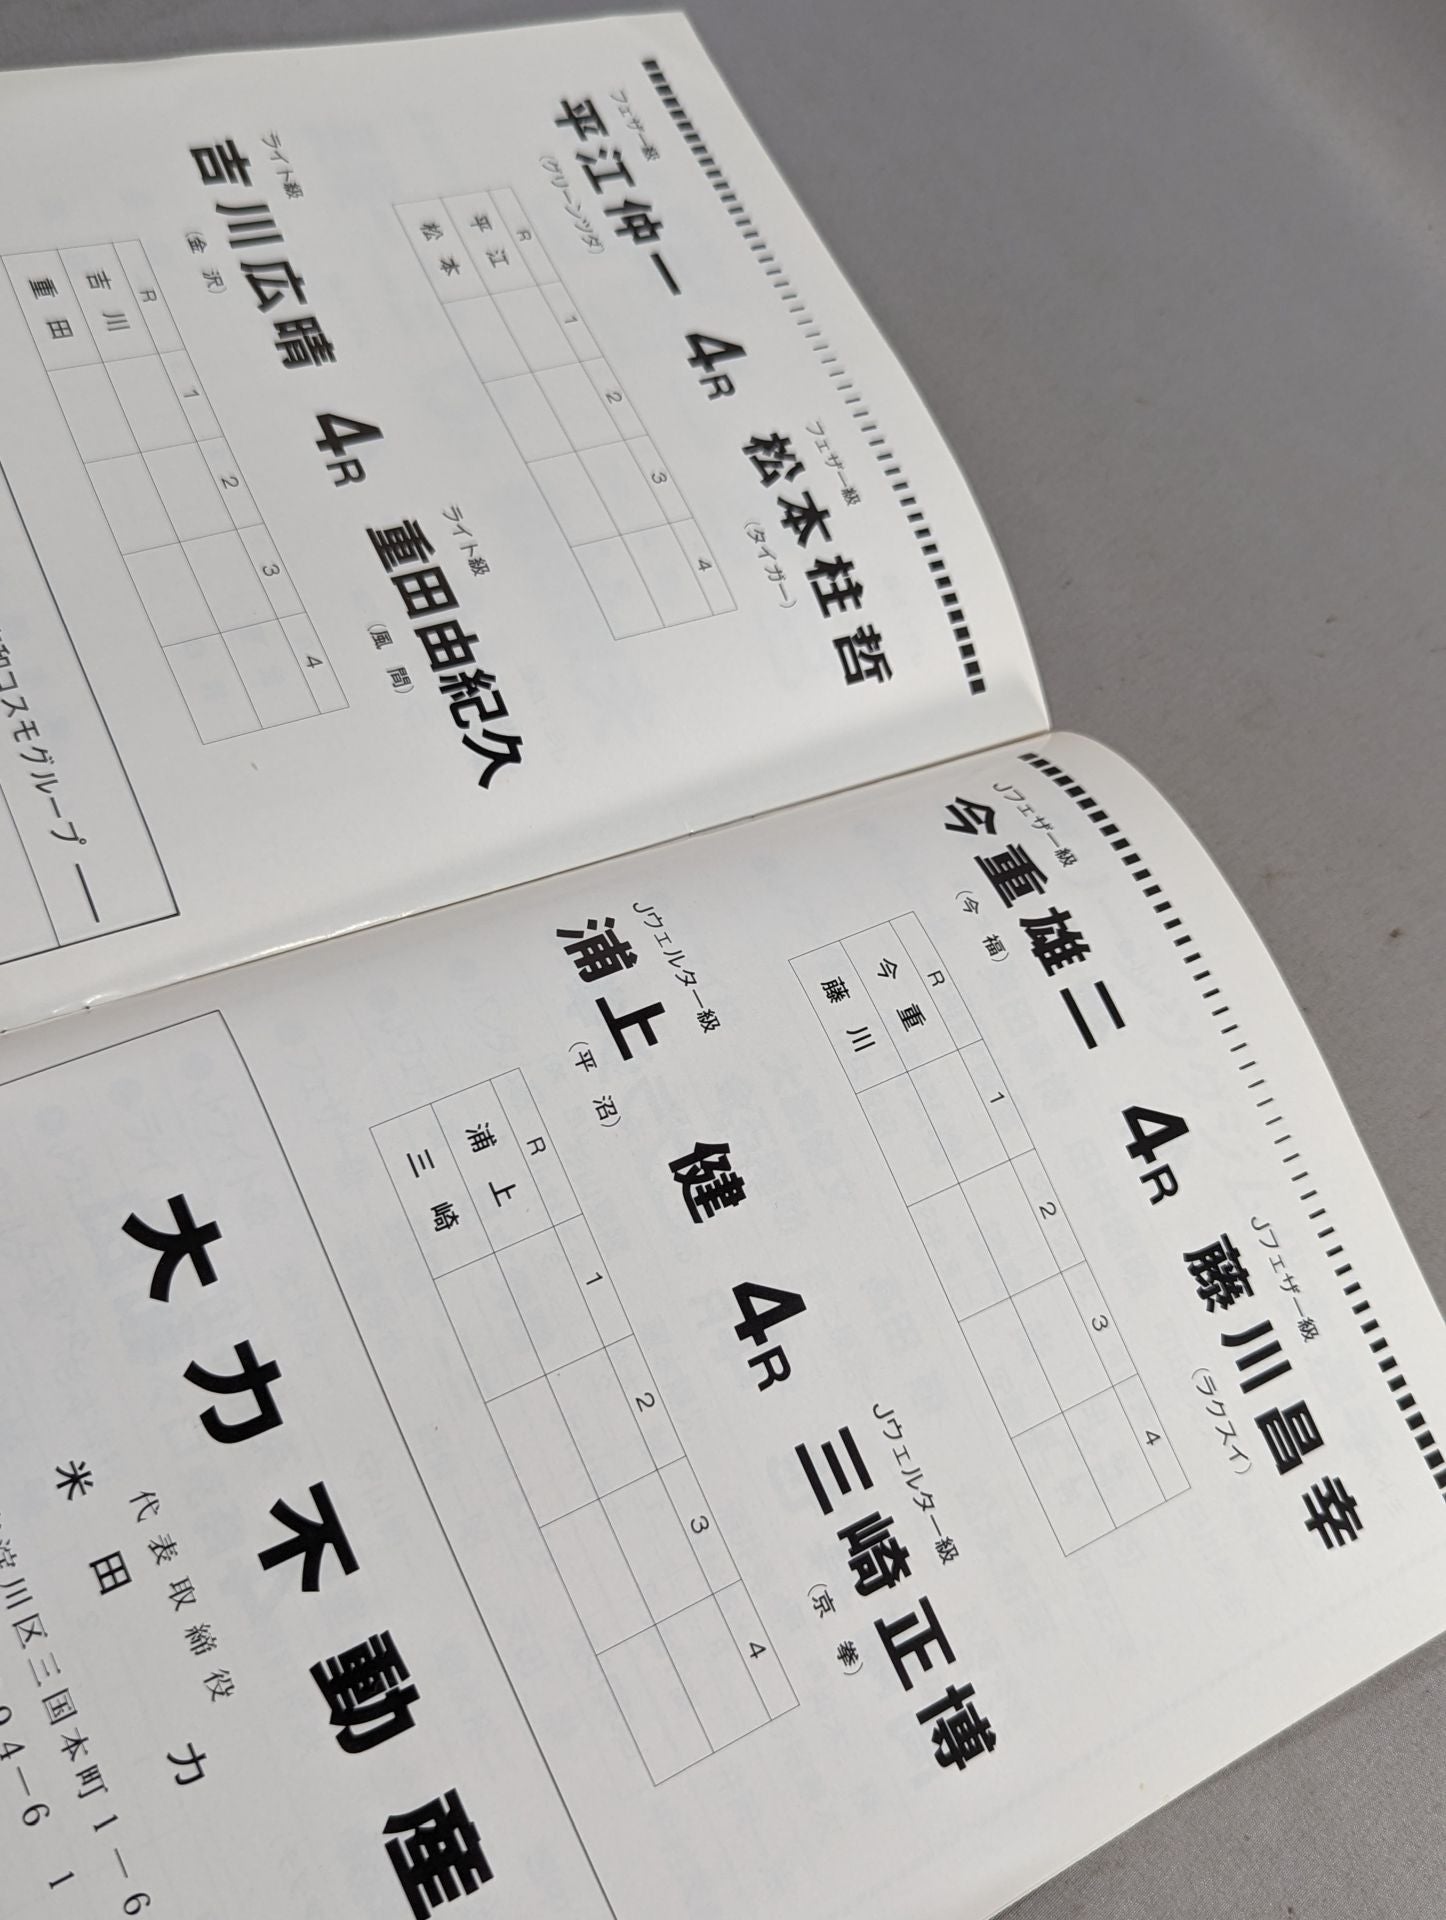 フェザー級 フェザー級
平江仲一 4R 松本桂哲
(グリーンツダ) (タイガー)
R 1 2 3 4
平江
松本
ライト級 ライト級
吉川広晴 4R 重田由紀久
(金沢) (風間)
R 1 2 3 4
吉川
重田
和コスモグループ ―
Jフェザー級 Jフェザー級
今重雄二 4R 藤川昌幸
(今福) (ラクスイ)
R 1 2 3 4
今重
藤川
Jウェルター級 Jウェルター級
浦上 健 4R 三崎正博
(平沼) (京拳)
R 1 2 3 4
浦上
三崎
大力不動産
代表取締役
米田 力
淀川区三国本町1―6
94―6 1